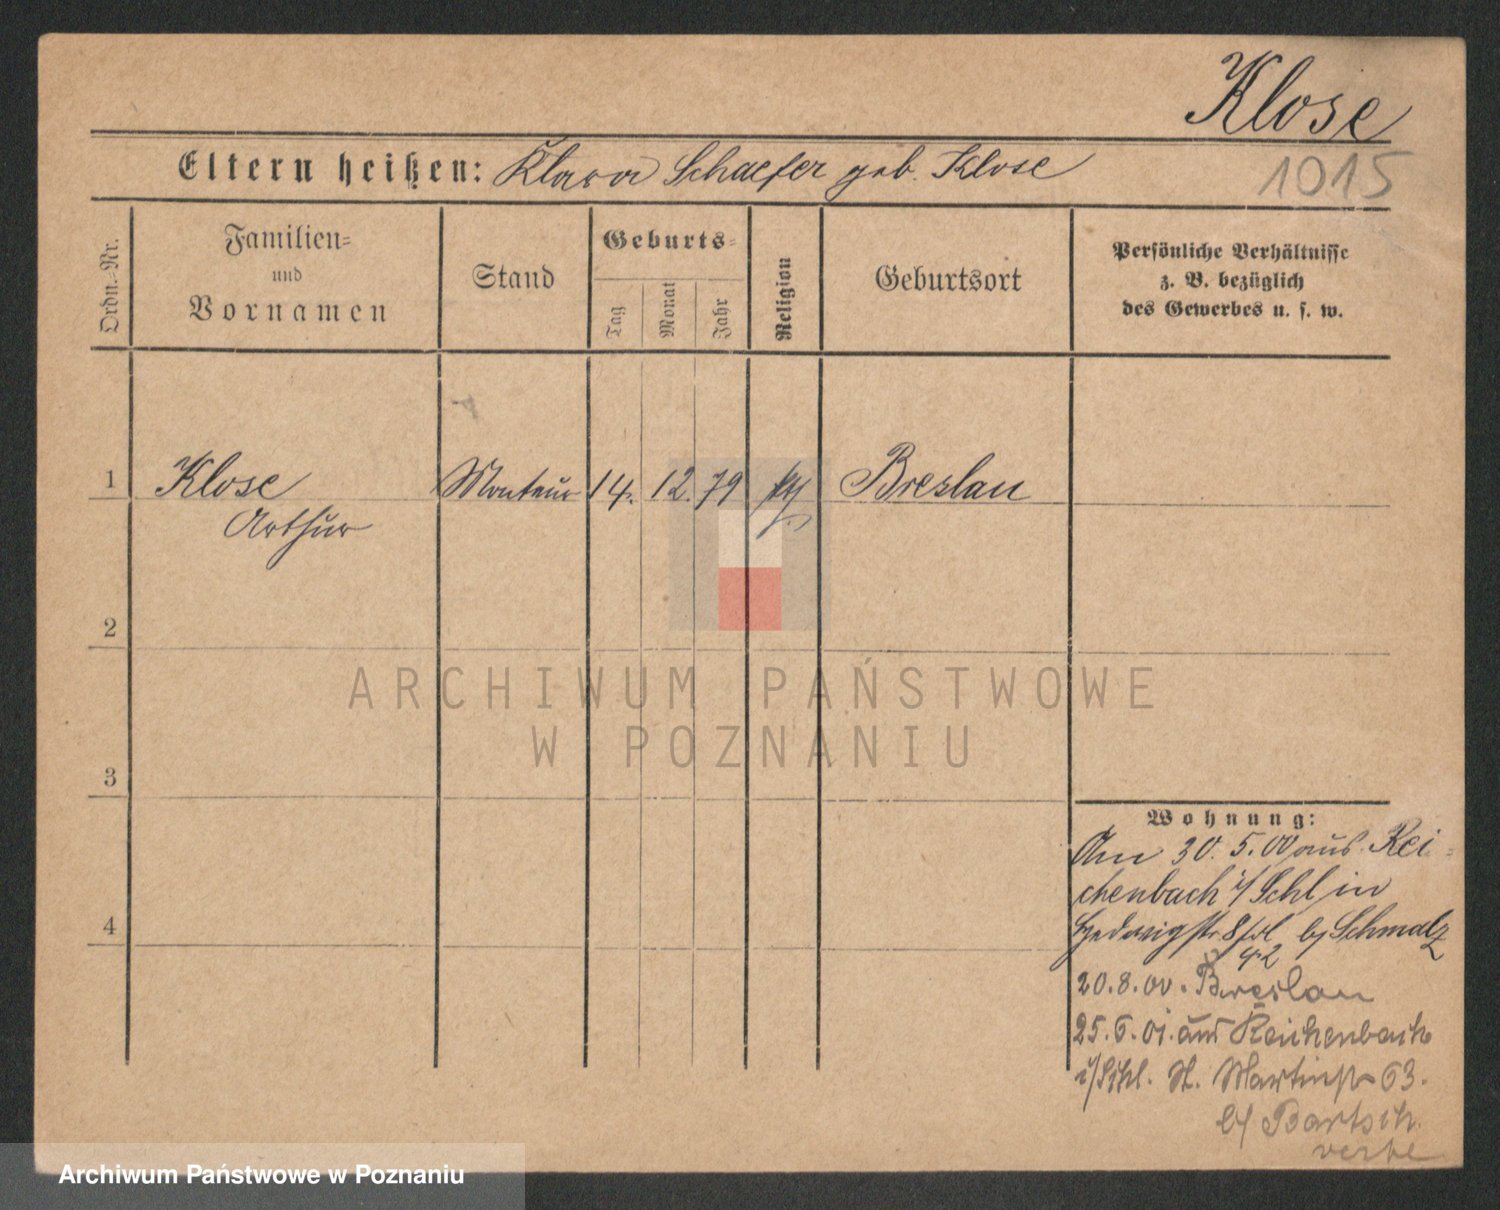 Klose
Eltern heißen: Klara Schaefer geb. Klose
1015
Ordn.-Nr.
Familien-
und
Vornamen
Stand
Geburts-
Tag
Monat
Jahr
Religion
Geburtsort
Persönliche Verhältnisse
z. B. bezüglich
des Gewerbes u. s. w.
1
Klose
Arthur
Monteur
14.
12.
79
Breslau
2
3
4
ARCHIWUM PAŃSTWOWE
W POZNANIU
Wohnung:
Am 30. 5. 00 aus Rei-
chenbach i/ Schl in
Hedwigstr 8 bj Schmalz
20. 8. 00. Breslau
25. 6. 01. aus Reichenbach
i/Schl. St. Martinstr 63.
bj Bartsch
Archiwum Państwowe w Poznaniu